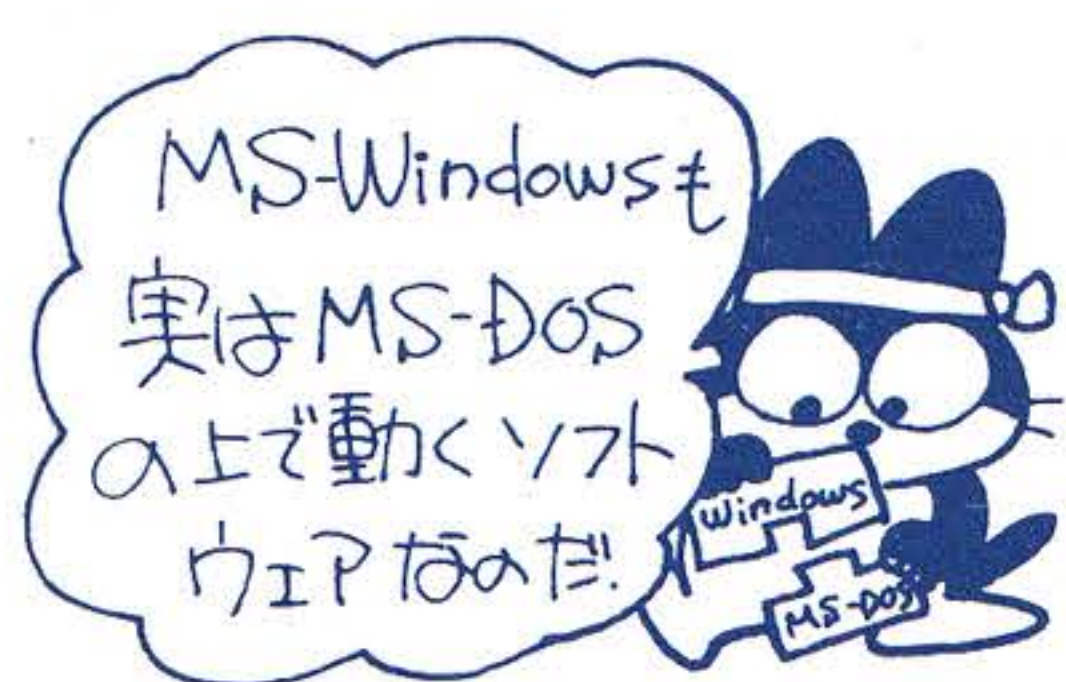 MS-Windowsも
実はMS-DOS
の上で動くソフト
ウェアなのだ!
Windows
MS-DOS